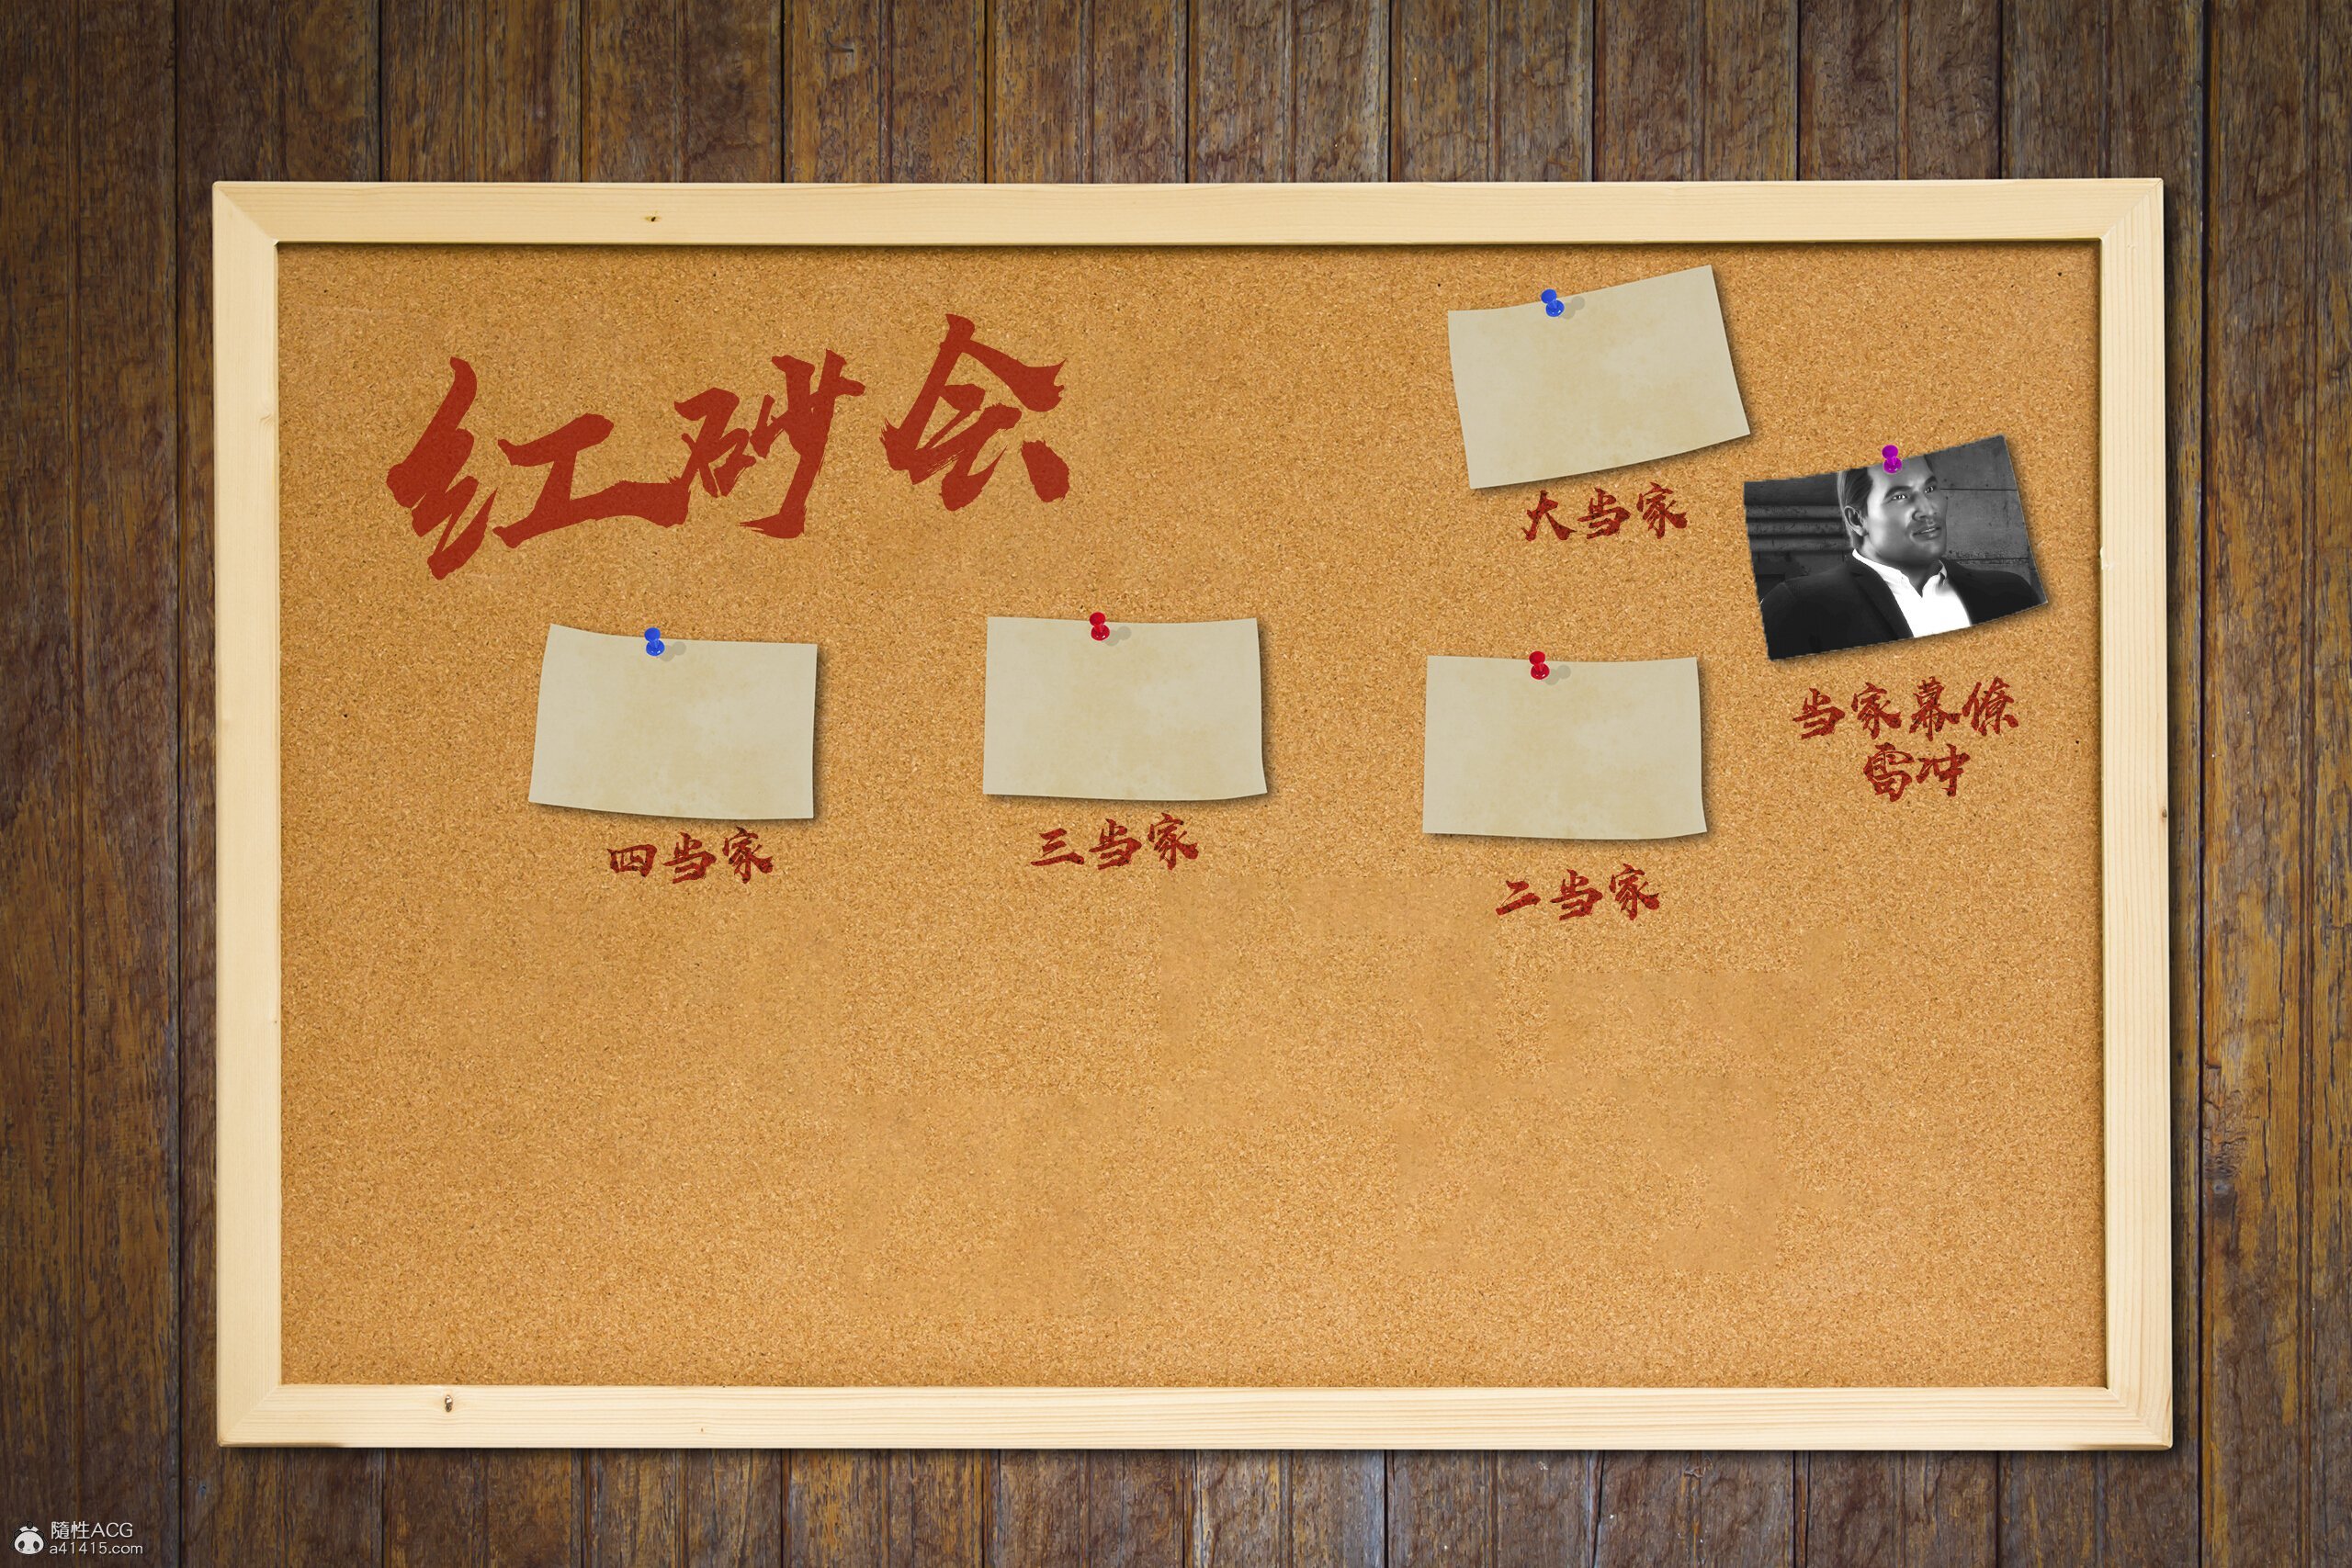 红砂会
大当家
当家幕僚
雷冲
四当家
三当家
二当家
隨性ACG
a41415.com